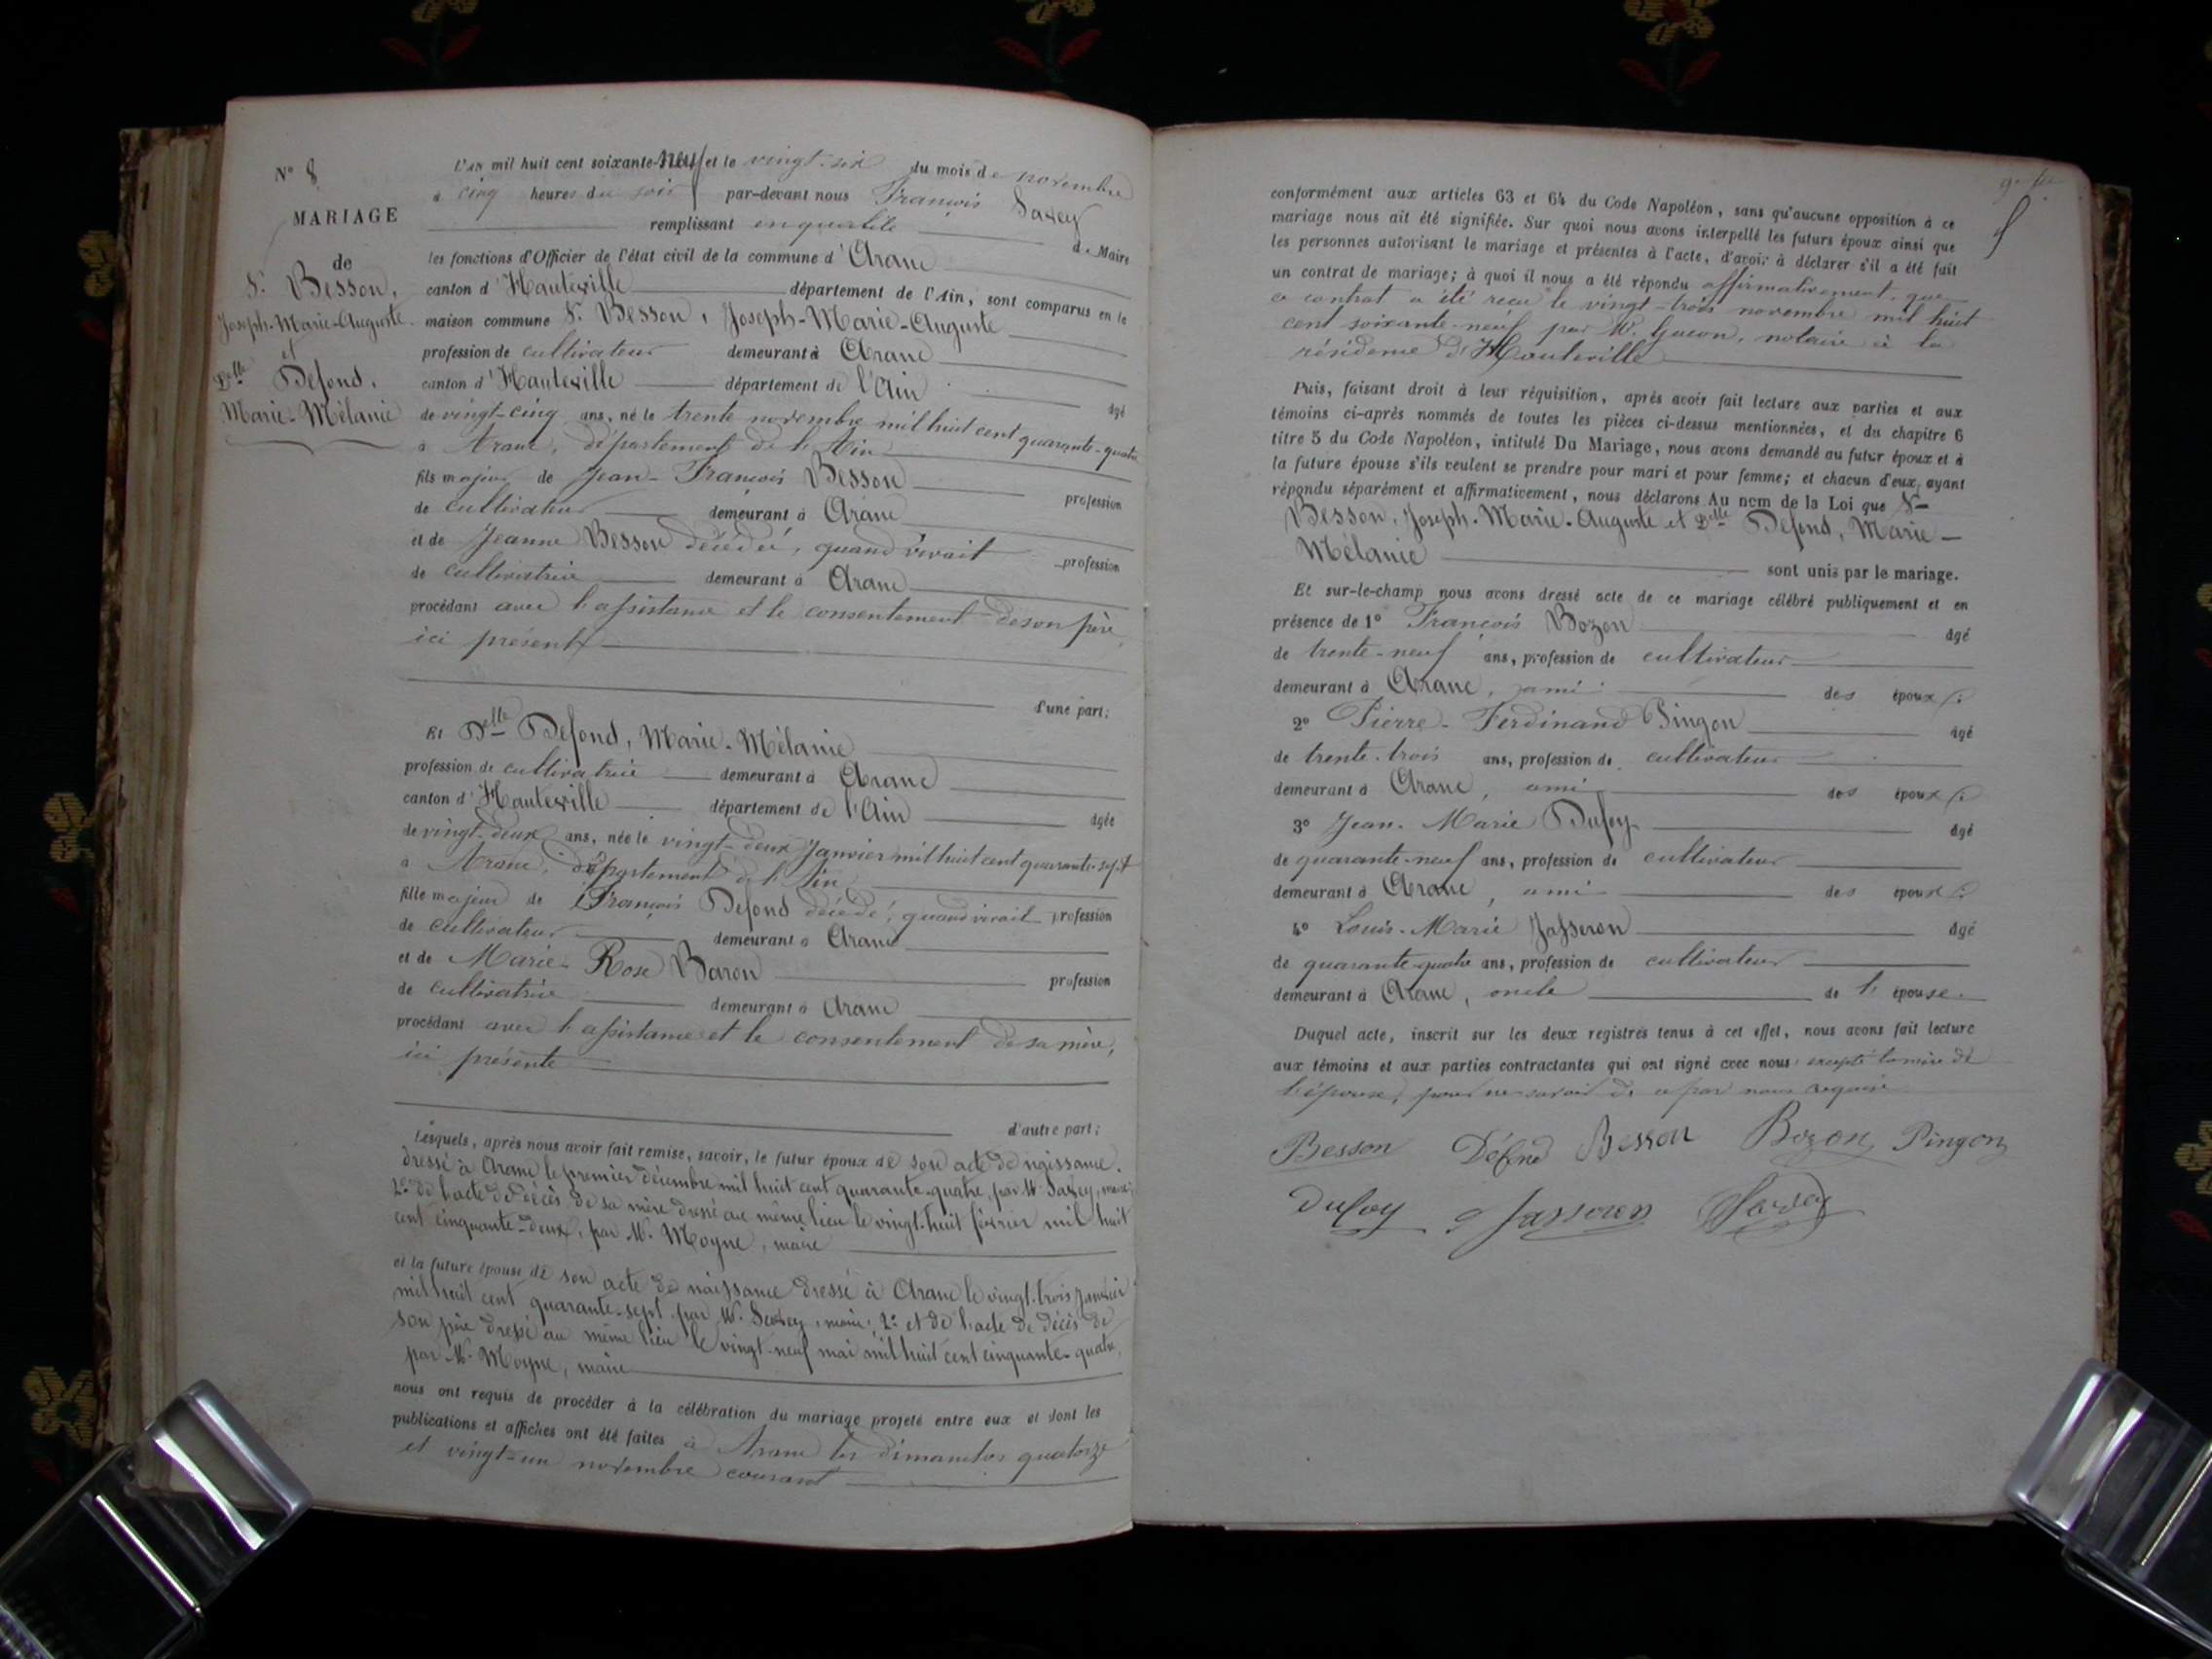 N° 8
MARIAGE
de
Sr Besson,
Joseph-Marie-Auguste
et
Delle Défond,
Marie-Mélanie
L'an mil huit cent soixante-neuf et le vingt-six du mois de novembre
à cinq heures du soir par-devant nous François Savey
remplissant en qualité de Maire
les fonctions d'Officier de l'état civil de la commune d'Aranc
canton d'Hauteville département de l'Ain, sont comparus en la
maison commune Sr Besson, Joseph-Marie-Auguste
profession de cultivateur demeurant à Aranc
canton d'Hauteville département de l'Ain âgé
de vingt-cinq ans, né le trente novembre mil huit cent quarante-quatre
à Aranc, département de l'Ain
fils majeur de Jean-François Besson profession
de cultivateur demeurant à Aranc
et de Jeanne Besson décédée, quand vivait profession
de cultivatrice demeurant à Aranc
procédant avec l'assistance et le consentement de son père,
ici présent
d'une part;
Et Delle Défond, Marie-Mélanie
profession de cultivatrice demeurant à Aranc
canton d'Hauteville département de l'Ain âgée
de vingt-deux ans, née le vingt-deux Janvier mil huit cent quarante-sept
à Aranc, département de l'Ain
fille majeur de François Défond décédé, quand vivait profession
de cultivateur demeurant à Aranc
et de Marie-Rose Baron profession
de cultivatrice demeurant à Aranc
procédant avec l'assistance et le consentement de sa mère,
ici présente
d'autre part;
Lesquels, après nous avoir fait remise, savoir, le futur époux de son acte de naissance
dressé à Aranc le premier décembre mil huit cent quarante-quatre, par M. Savey, maire;
2° de l'acte de décès de sa mère dressé au même lieu le vingt-huit février mil huit
cent cinquante-deux, par M. Moyne, maire
et la future épouse de son acte de naissance dressé à Aranc le vingt-trois janvier
mil huit cent quarante-sept par M. Savey, maire; 2° et de l'acte de décès de
son père dressé au même lieu le vingt-neuf mai mil huit cent cinquante-quatre,
par M. Moyne, maire
nous ont requis de procéder à la célébration du mariage projeté entre eux et dont les
publications et affiches ont été faites à Aranc les dimanches quatorze
et vingt-un novembre courant
conformément aux articles 63 et 64 du Code Napoléon, sans qu'aucune opposition à ce
mariage nous ait été signifiée. Sur quoi nous avons interpellé les futurs époux ainsi que
les personnes autorisant le mariage et présentes à l'acte, d'avoir à déclarer s'il a été fait
un contrat de mariage; à quoi il nous a été répondu affirmativement, que
ce contrat a été reçu le vingt-trois novembre mil huit
cent soixante-neuf par M. notaire à la
résidence d'Hauteville
Puis, faisant droit à leur réquisition, après avoir fait lecture aux parties et aux
témoins ci-après nommés de toutes les pièces ci-dessus mentionnées, et du chapitre 6
titre 5 du Code Napoléon, intitulé Du Mariage, nous avons demandé au futur époux et à
la future épouse s'ils veulent se prendre pour mari et pour femme; et chacun d'eux, ayant
répondu séparément et affirmativement, nous déclarons Au nom de la Loi que Sr
Besson, Joseph-Marie-Auguste et Delle Défond, Marie-
Mélanie sont unis par le mariage.
Et sur-le-champ nous avons dressé acte de ce mariage célébré publiquement et en
présence de 1° François Bozon âgé
de trente-neuf ans, profession de cultivateur
demeurant à Aranc, ami des époux
2° Pierre-Ferdinand Pingon âgé
de trente-trois ans, profession de cultivateur
demeurant à Aranc, ami des époux
3° Jean-Marie Dufoy âgé
de quarante-neuf ans, profession de cultivateur
demeurant à Aranc, ami des époux
4° Louis-Marie Jasseron âgé
de quarante-quatre ans, profession de cultivateur
demeurant à Aranc, oncle de l'épouse.
Duquel acte, inscrit sur les deux registres tenus à cet effet, nous avons fait lecture
aux témoins et aux parties contractantes qui ont signé avec nous excepté la mère de
l'épouse, pour ne savoir de ce par nous requise
Besson Défond Besson Bozon Pingon
Dufoy Jasseron Savey